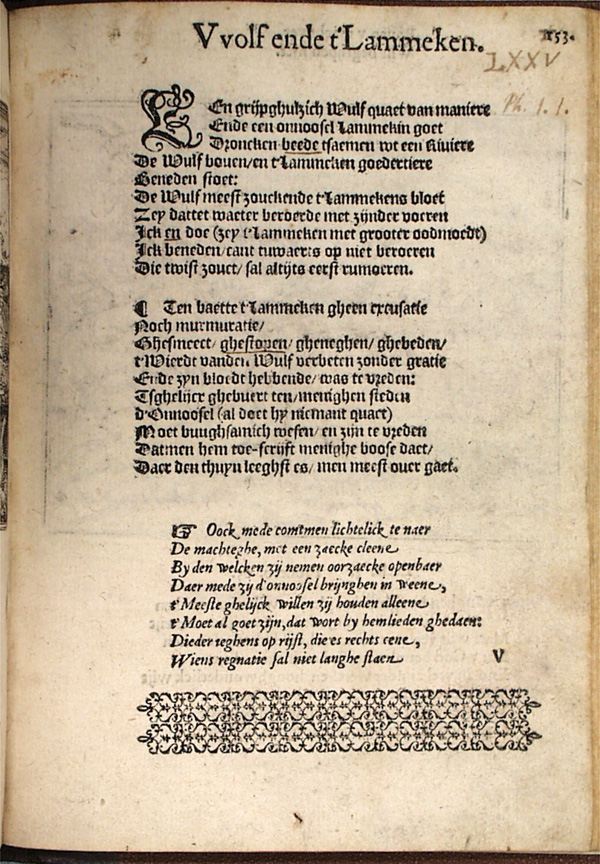 Vvolf ende t'Lammeken. 153.
LXXV
Ph. I. 1.
EEn grijpghulzich Wulf quaet van maniere
Ende een onnoosel Lammekin goet
Droncken beede tsaemen wt een Riviere
De Wulf bouen/ en t'Lammeken goedertiere
Beneden stoet:
De Wulf meest zouckende t'Lammekens bloet
Zey dattet waeter beroerde met zijnder voeten
Ick en doe (zey t'Lammeken met grooter oodmoedt)
Ick beneden/ cant tuwaerts op niet beroeren
Die twist zouct/ sal altijts eerst rumoeren.
¶ Ten baette t'Lammeken gheen excusatie
Noch murmuratie/
Ghesmeect/ ghestopen/ gheneghen/ ghebeden/
t'Wierdt vanden Wulf verbeten zonder gratie
Ende zyn bloedt hebbende/ was te vreden:
Tsghelijcx ghebuert ten/ menighen steden
d'Onnoosel (al doet hy niemant quaet)
Moet buughsamich wesen/ en zijn te vreden
Datmen hem toe-scrijft menighe boose daet/
Daer den thuyn leeghst es/ men meest ouer gaet.
☞ Oock mede comtmen lichtelick te naer
De machteghe, met een zaecke cleene
By den welcken zij nemen oorzaecke openbaer
Daer mede zij d'onnoosel brijnghen in weene,
t'Meeste ghelijck willen zij houden alleene
t'Moet al goet zijn, dat wort by hemlieden ghedaen:
Die der teghens op rijst, die es rechts eene,
Wiens regnatie sal niet langhe staen
V